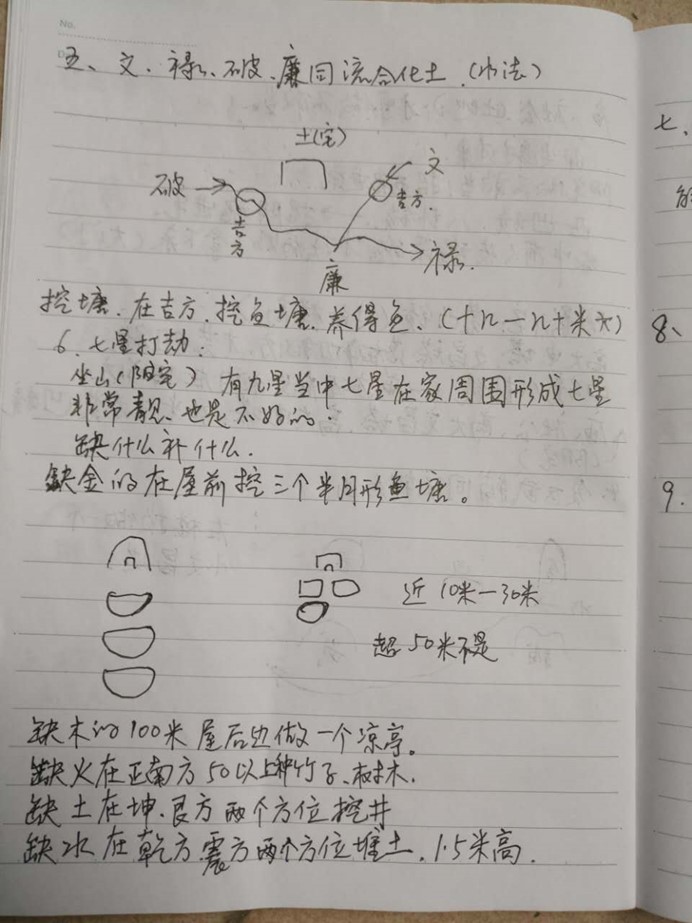 No.
五、文、禄、破、廉同流合化土(水法)
土(宅)
破
文
吉方
吉方.
廉
禄.
挖塘.在吉方.挖鱼塘.养得鱼、
6、七星打劫:
坐山(阳宅)有九星当中七星在家周围形成七星
非常 也是不好的
缺什么补什么.
缺金的在屋前挖三个半月形鱼塘。
近10米—30米
超50米不是
缺木的100米屋后边做一个凉亭。
缺火在正南方50以上种竹子、树木.
缺土在坤.艮方两个方位挖井
缺水在乾方.震方两个方位堆土.1.5米高.
七、
8、
9.